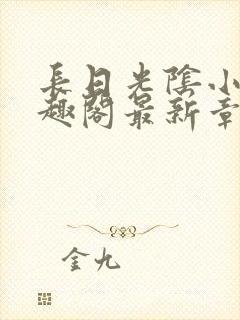 長日光陰小
趣閣最新章
金九